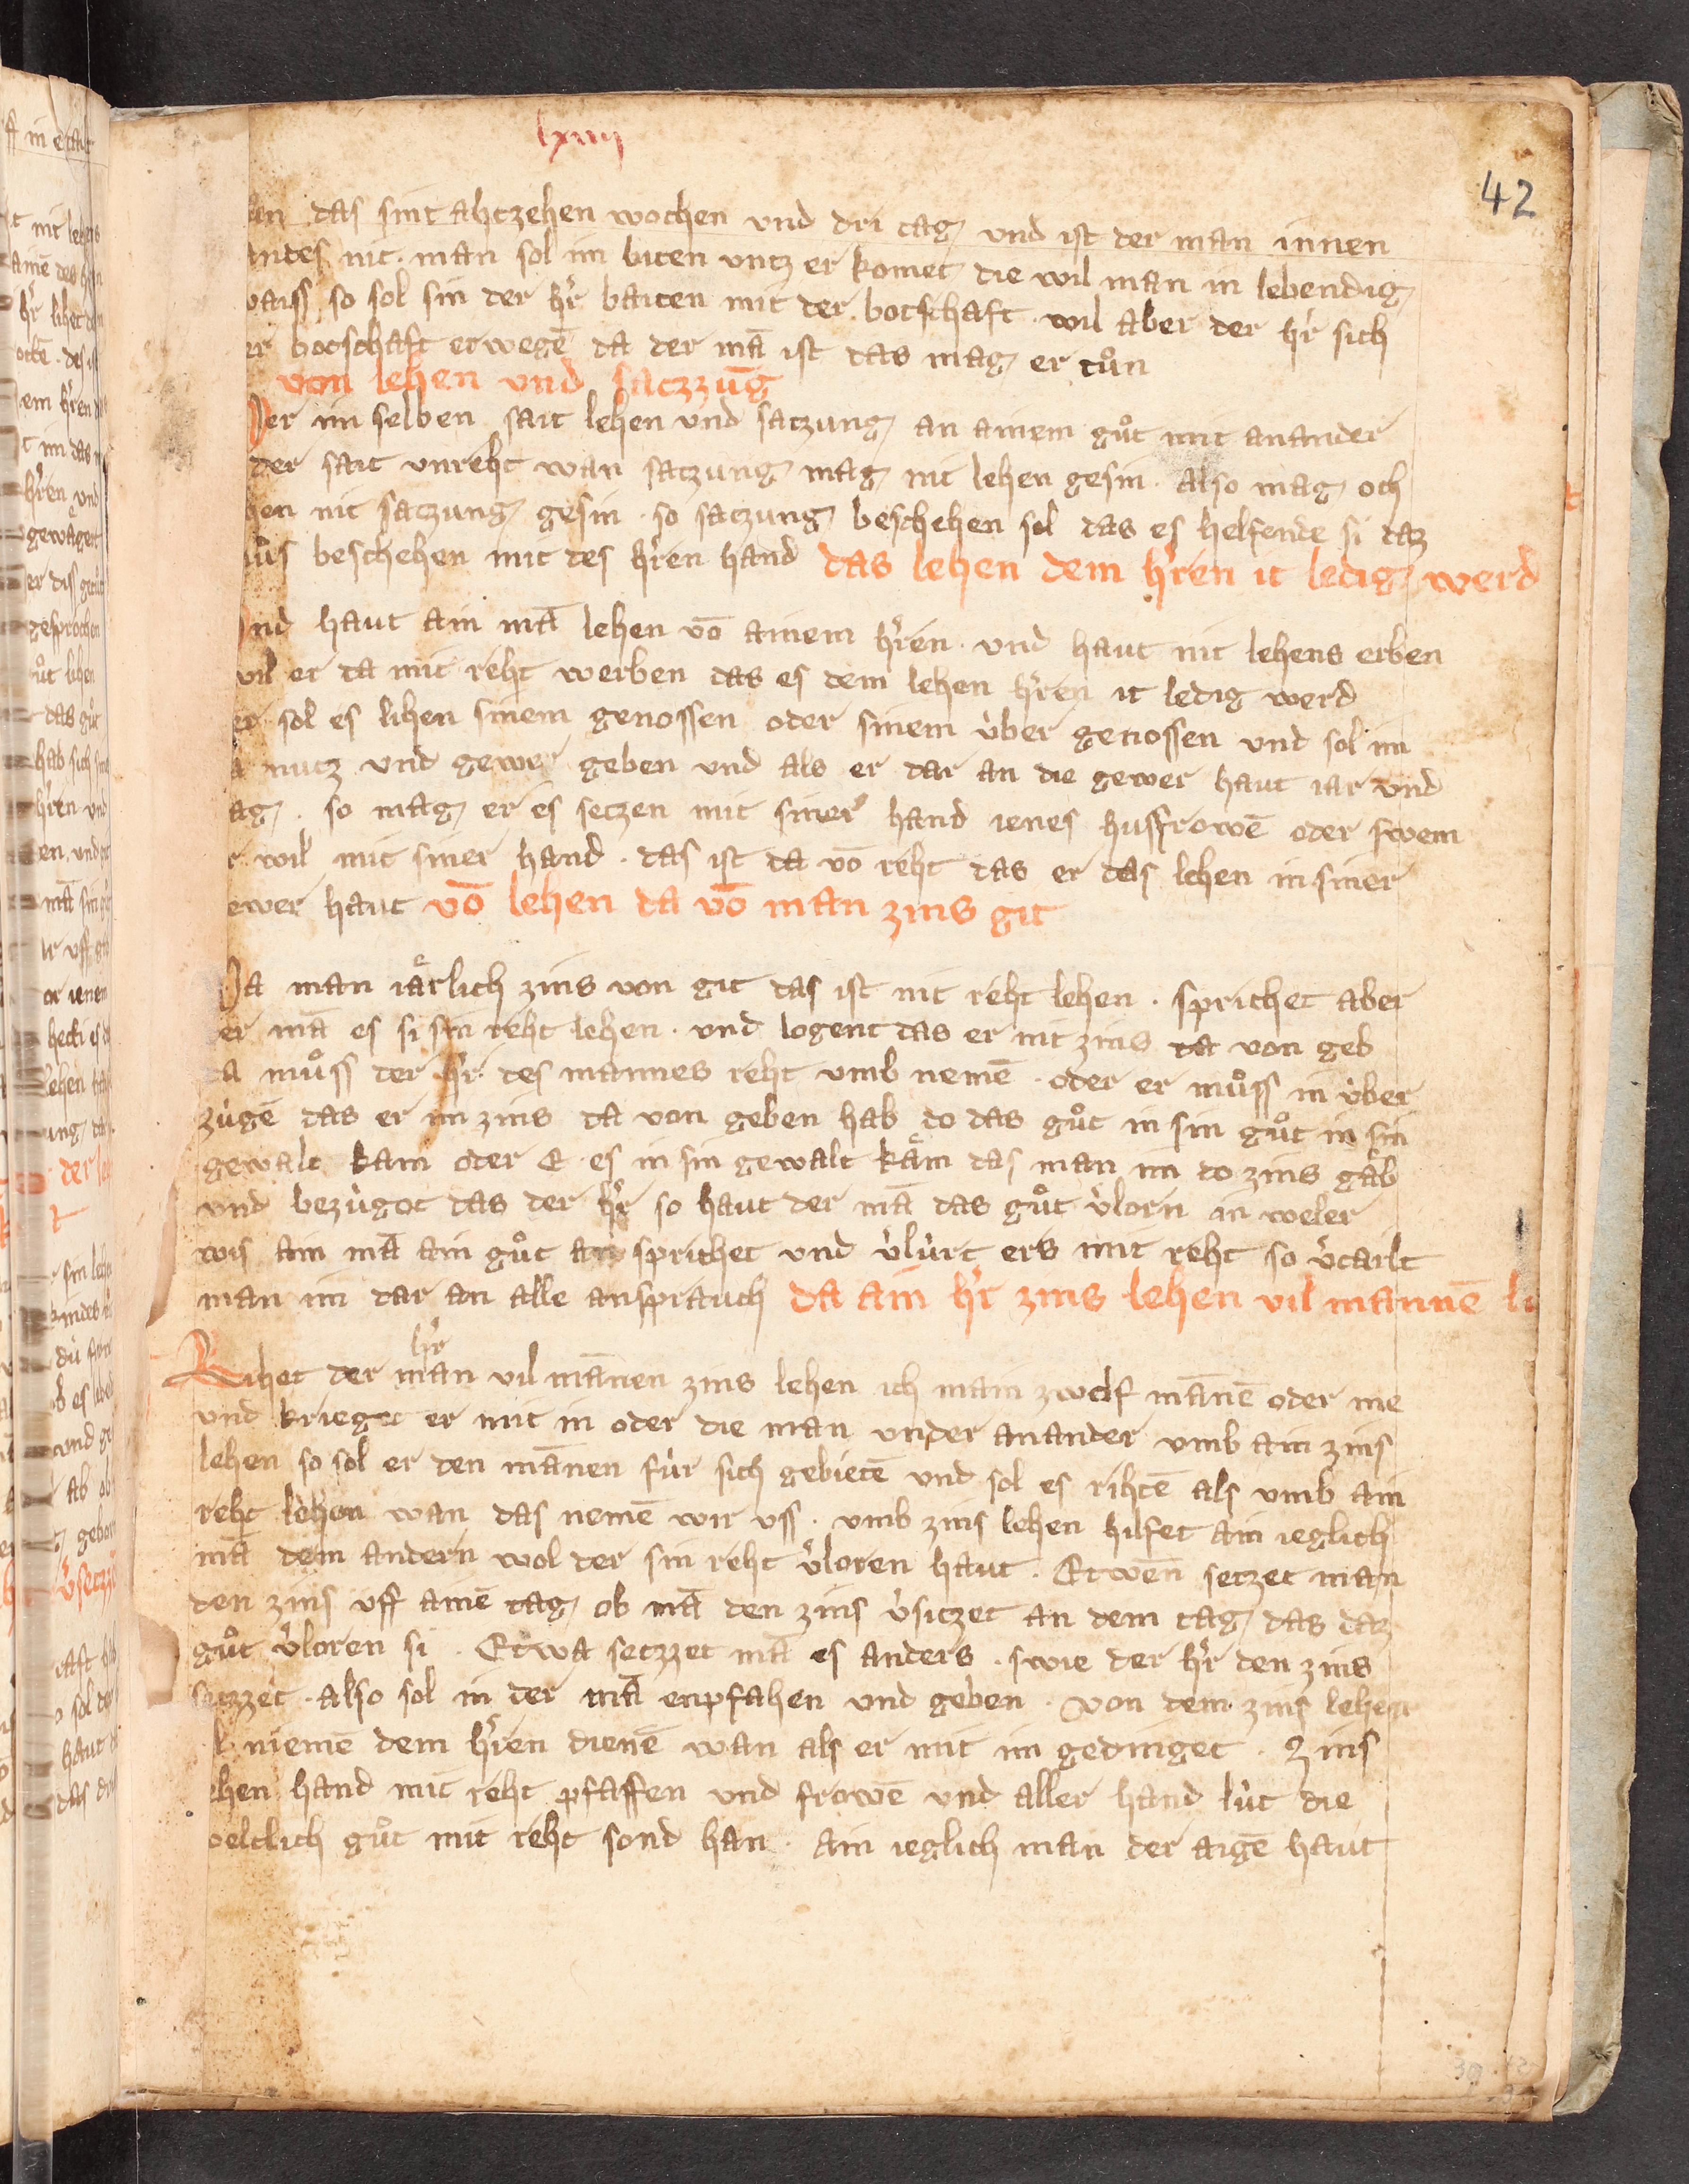 lxviij
42
en das sint ahtzehen wochen vnd dri tag vnd ist der man innen
andes nit. man sol im biten vntz er komet die wil man in lebendig
waiss so sol sin der hr̄ baiten mit der botschaft. wil aber der hr̄ sich
er botschaft erwegē da der mā ist das mag er tůn
von lehen vnd satzzūg
Der im selben sait lehen vnd satzung an ainem gůt mit anander
der sait vnreht wan satzung mag nit lehen gesin. Also mag och
hen nit satzung gesin. so satzung beschehen sol das es helfende si daz
mùs beschehen mit des hr̄en hand das lehen dem hr̄en it ledig werd
Vnd haut ain mā lehen vō ainem hr̄en. vnd haut nit lehens erben
wil er da mit reht werben das es dem lehen hr̄en it ledig werd
er sol es lihen sinem genossen oder sinem v̀ber genossen vnd sol im
a nutz vnd gewer geben vnd als er dar an die gewer haut iar vnd
ag. so mag er es setzen mit siner hand ienes husfrowē oder swem
r wil mit siner hand. das ist da vō reht das er das lehen in siner
ewer haut vō lehen da vō man zins git
Da man iaͤrlich zins von git das ist nit reht lehen. sprichet aber
er mā es si sin reht lehen. vnd logent das er nit zins da von geb
da můss der hr̄ des mannes reht vmb nemē. oder er můss in v̀ber
zùgē das er im zins da von geben hab do das gůt in sin gůt in sin
gewalt kam oder E. es in sin gewalt kaͤm das man im do zins gaͤb
vnd bezùgot das der hr̄ so haut der mā das gůt v̓lorn in weler
wis ain mā ain gůt an sprichet vnd v̓lùrt ers mit reht so v̓tailt
man im dar an alle ansprauch da ain hr̄ zins lehen vil mannē li
hr̄
Lihet der man vil mānen zins lehen ich main zwelf mānē oder me
vnd krieget er mit in oder die man vnder anander vmb ain zins
lehen so sol er den mānen fùr sich gebietē vnd sol es rihtē als vmb ain
reht lehen wan das nemē wir vss. vmb zins lehen hilfet ain ieglich
mā dem andern wol der sin reht v̓loren haut. Etwēn setzet man
den zins vff ainē tag ob mā den zins v̓sitzet an dem tag das daz
gůt v̓loren si. Etwa setzzet mā es anders. swie der hr̄ den zins
setzzet. also sol in der mā enpfahen vnd geben. von dem zins lehen
l niemē dem hr̄en dienē wan als er mit im gedinget. Zins
ehen hand mit reht pfaffen vnd frowē vnd aller hand lùt die
weltlich gůt mit reht sond han. ain ieglich man der aigē haut